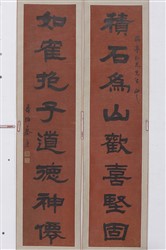 積石為山歡喜堅固
如雀抱子道德神僊